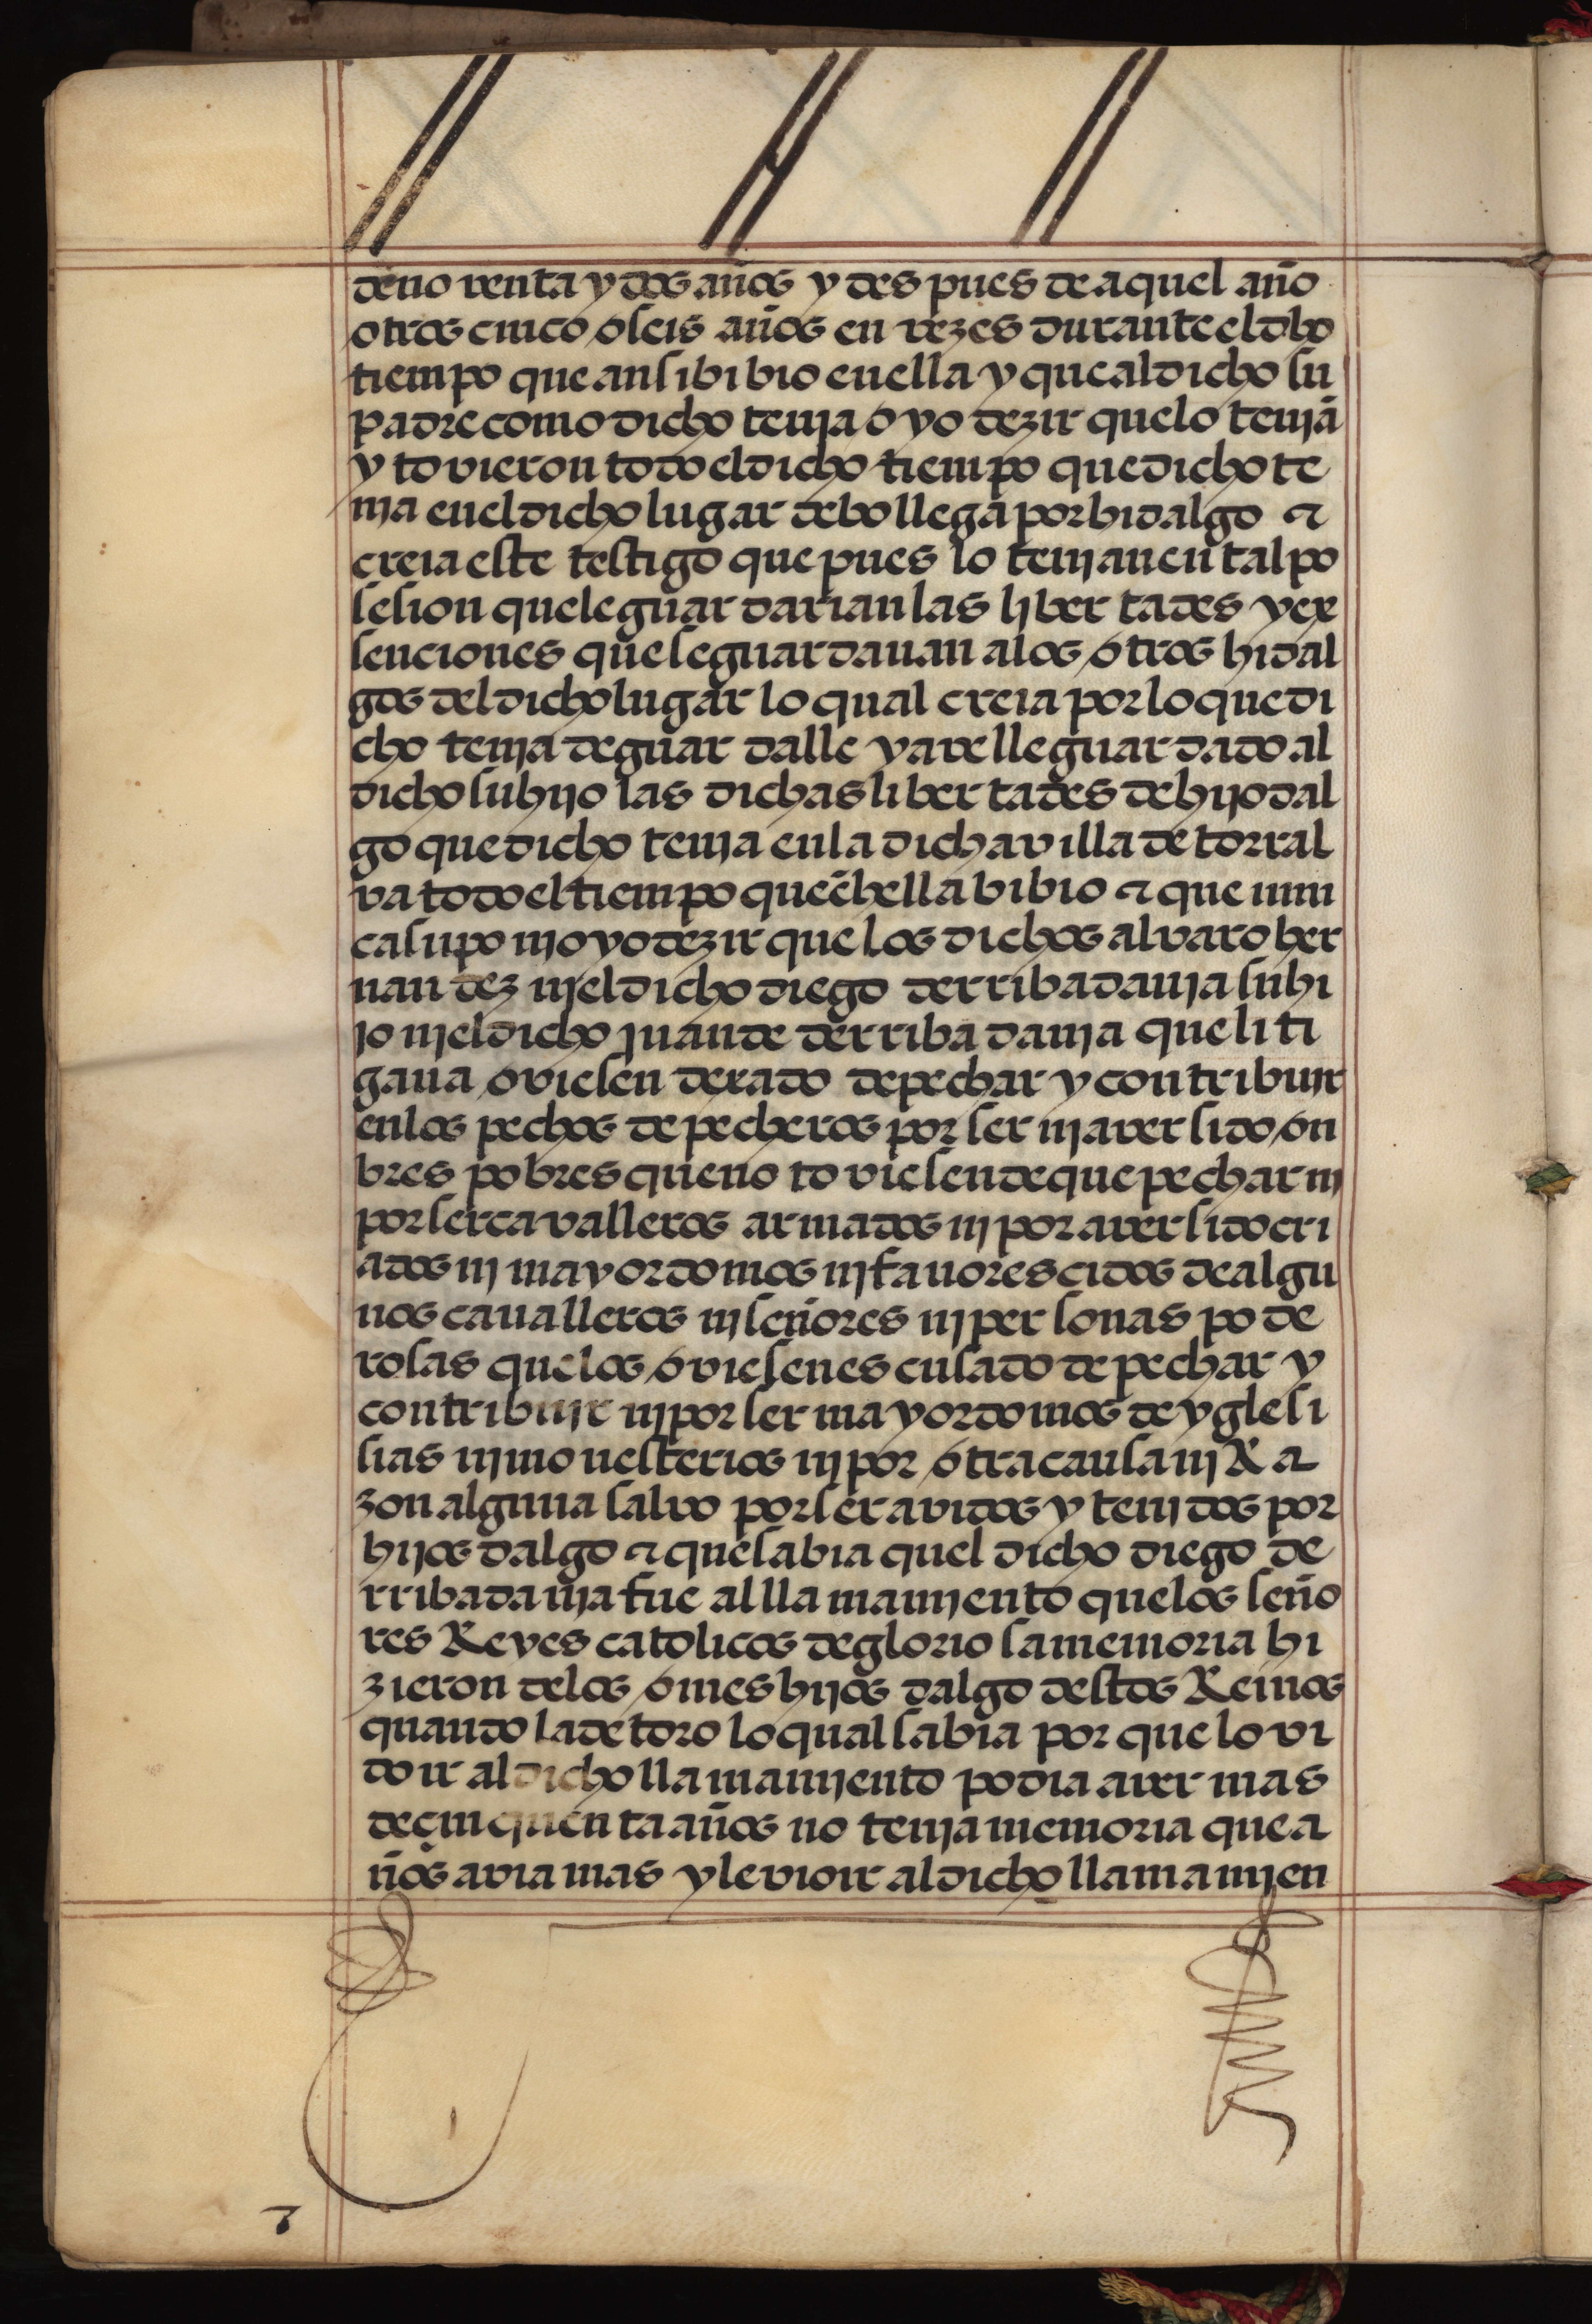 de no venta y dos años y des pues de aquel año
otros cinco o seis años en vezes durante el dho
tiempo que ansi bibio en ella y que al dicho su
padre como dicho tenja oyo dezir que lo tenjã
y tovieron todo el dicho tiempo que dicho te
nja en el dicho lugar de bollega por hidalgo ⁊
creia este testigo que pues lo tenjan en tal po
sesion que le guardarian las libertades y ex
senciones que se guardauan a los otros hidal
gos del dicho lugar lo qual creia por lo que di
cho tenja de guardalle y avelle guardado al
dicho su hijo las dichas libertades de hijodal
go que dicho tenja en la dicha villa de torral
va todo el tiempo que ẽ hella bibio ⁊ que nun
ca supo nj oyo dezir que los dichos alvaro her
nandez nj el dicho diego de rribadauja su hi
jo nj el dicho juan de de rribadauja que liti
gaua oviesen dexado de pechar y contribujr
en los pechos de pecheros por ser nj aver sido on
bres pobres que no toviesen de que pechar nj
por ser cavalleros armados nj por aver sido cri
ados nj mayordomos nj fauorescidos de algu
nos caualleros nj señores nj personas pode
rosas que los oviesen escusado de pechar y
contribujr nj por ser mayordomos de yglesi
sias nj monesterios nj por otra causa nj Ra
zon alguna salvo por ser avidos y tenjdos por
hijos dalgo ⁊ que sabia quel dicho diego de
rribadauja fue al llamamjento que los seño
res Reyes catolicos de gloriosa memoria hi
zieron de los omes hijos dalgo destos Reinos
quando la de toro lo qual sabia por que lo vi
do ir al dicho llamamjento podia aver mas
de cinquenta años no tenja memoria que a
ños avia mas y le vio ir al dicho llamamjen